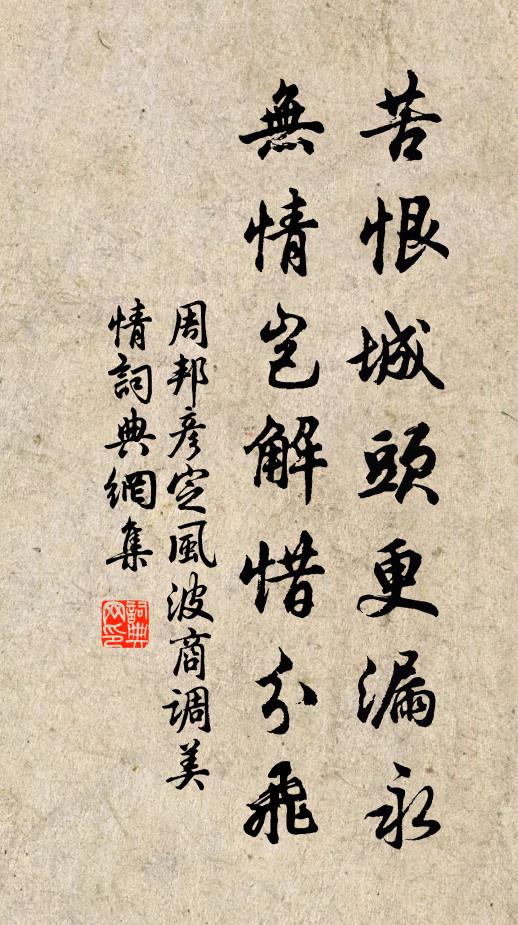 苦恨城頭更漏永
無情豈解惜分飛
周邦彥定風波商調美
情詞典網集
詞典
网印